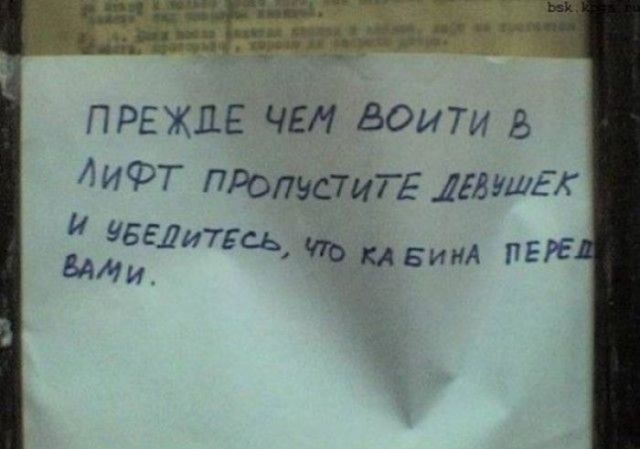 bsk.
ПРЕЖДЕ ЧЕМ ВОИТИ В
ЛИФТ ПРОПУСТИТЕ ДЕВУШЕК
И УБЕДИТЕСЬ, ЧТО КАБИНА ПЕРЕД
ВАМИ.